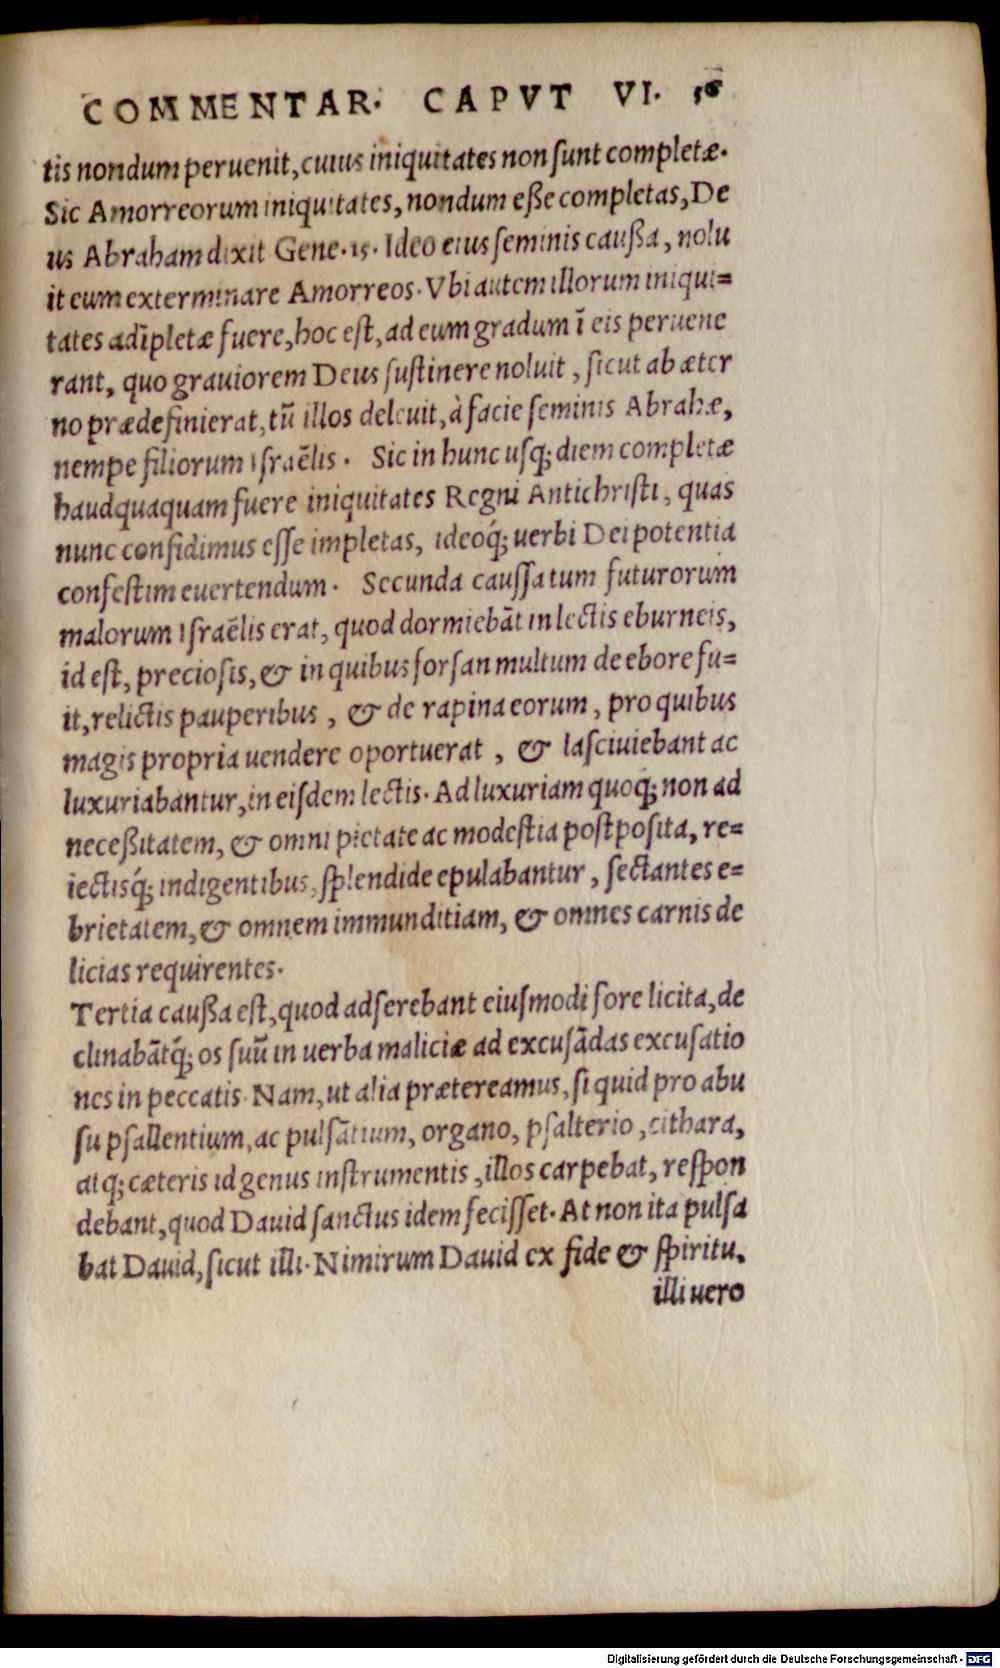 COMMENTAR. CAPVT VI. 56
tis nondum peruenit, cuius iniquitates non ſunt completæ.
Sic Amorreorum iniquitates, nondum eße completas, De
us Abraham dixit Gene.15. Ideo eius ſeminis caußa, nolu
it eum exterminare Amorreos. Vbi autem illorum iniqui=
tates adĩpletæ fuere, hoc eſt, ad eum gradum ĩ eis peruene
rant, quo grauiorem Deus ſuſtinere noluit, ſicut ab æter
no prædefinierat, tũ illos deleuit, à facie ſeminis Abrahæ,
nempe filiorum Iſraẽlis. Sic in hunc uſq; diem completæ
haudquaquam fuere iniquitates Regni Antichriſti, quas
nunc confidimus eſſe impletas, ideoq́; uerbi Dei potentia
confeſtim euertendum. Secunda cauſſa tum futurorum
malorum Iſraẽlis erat, quod dormiebãt in lectis eburneis,
id eſt, precioſis, & in quibus forſan multum de ebore fu=
it, relictis pauperibus, & de rapina eorum, pro quibus
magis propria uendere oportuerat, & laſciuiebant ac
luxuriabantur, in eiſdem lectis. Ad luxuriam quoq́; non ad
neceßitatem, & omni pietate ac modeſtia poſtpoſita, re=
iectisq́; indigentibus, ſplendide epulabantur, ſectantes e=
brietatem, & omnem immunditiam, & omnes carnis de
licias requirentes.
Tertia caußa eſt, quod adſerebant eiuſmodi fore licita, de
clinabãtq́; os ſuũ in uerba maliciæ ad excuſãdas excuſatio
nes in peccatis. Nam, ut alia prætereamus, ſi quid pro abu
ſu pſallentium, ac pulſãtium, organo, pſalterio, cithara,
atq; cæteris id genus inſtrumentis, illos carpebat, reſpon
debant, quod Dauid ſanctus idem feciſſet. At non ita pulſa
bat Dauid, ſicut illi. Nimirum Dauid ex fide & ſpiritu,
illi uero
Digitalisierung gefördert durch die Deutsche Forschungsgemeinschaft - DFG